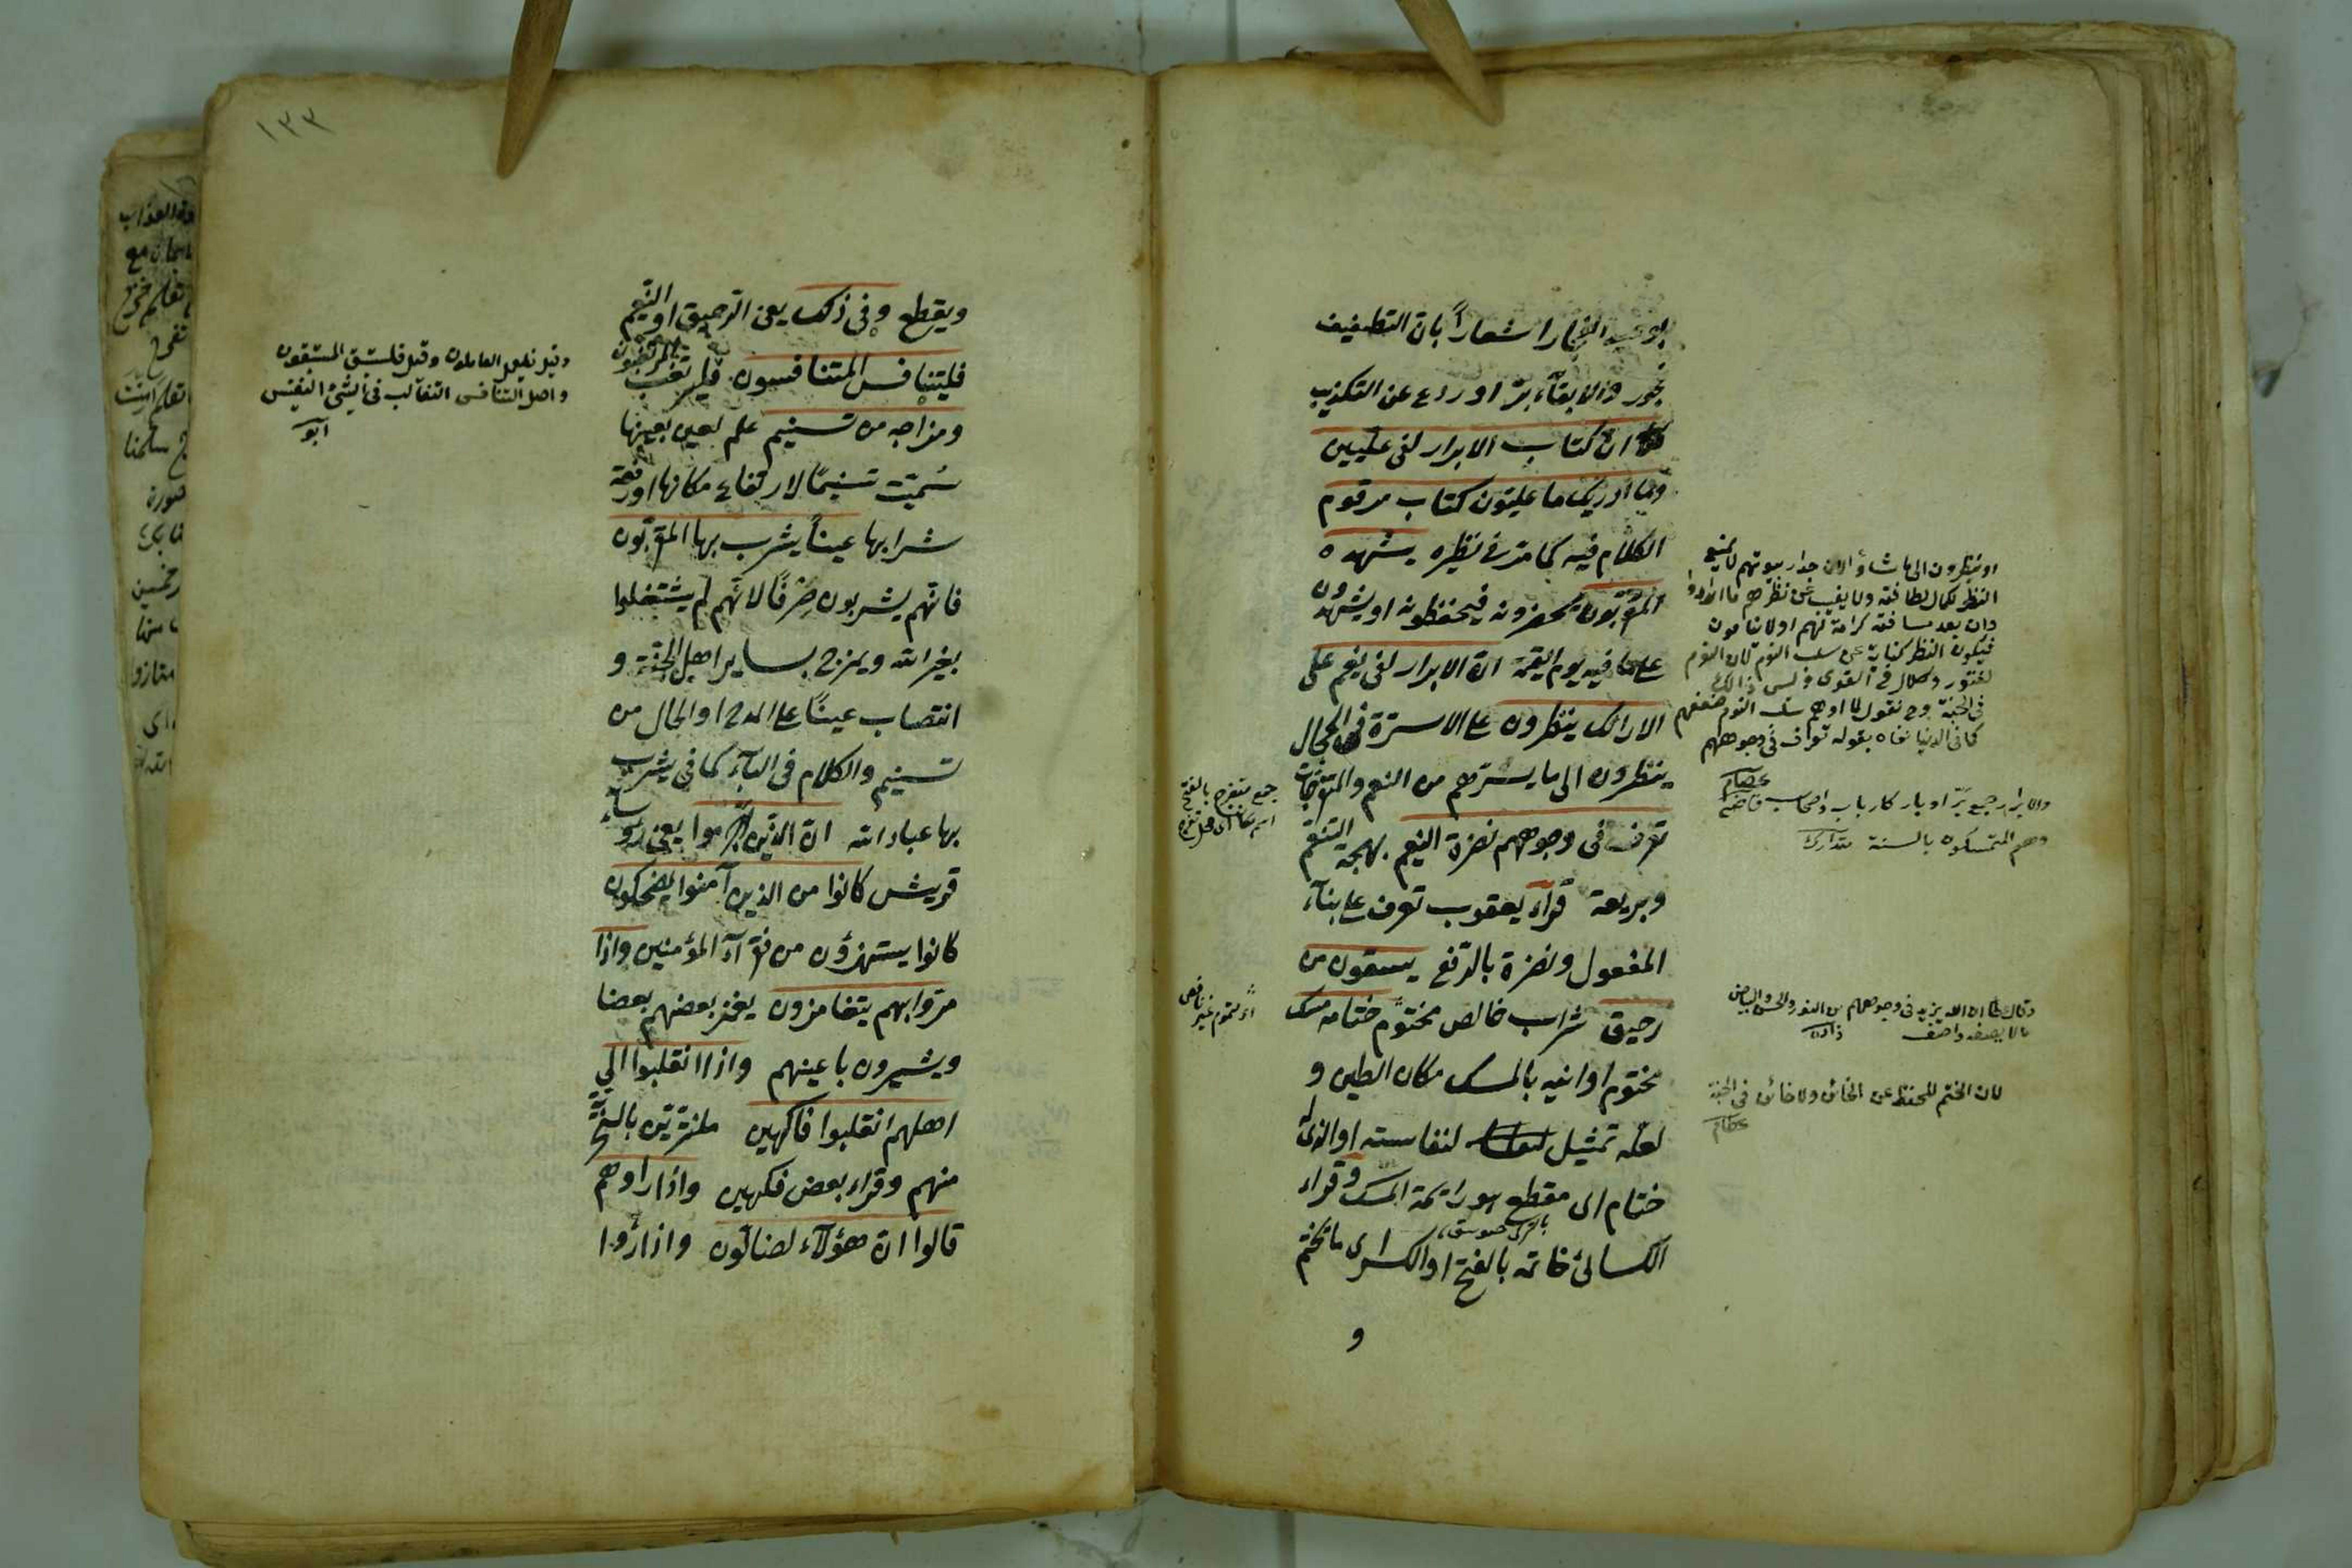 بوعيد الفجار اشعاراً بان التطفيف
فجور والايفآء برّ او ردع عن التكذيب
ان كتاب الابرار لفى عليين
وما ادريك ما عليّون كتاب مرقوم
الكلام فيه كما مرّ فى نظيره يشهده
المقرّبون يحضرونه فيحفظونه او يشهدون
على ما فيه يوم القيمة انّ الابرار لفى نعيم على
الارائك ينظرون على الاسرّة فى الحجال
ينظرون الى ما يسرّهم من النعم والمتفرّجات
تعرف فى وجوههم نضرة النعيم بهجة التنعّم
وبريعة قرآء يعقوب تعرف على بنآء
المفعول ونضرة بالرّفع يسقون من
رحيق شراب خالص مختوم ختامه مسك
مختوم اوانيه بالمسك مكان الطين و
لعلّه تمثيل لنفاسته او الذى
ختام اى مقطع هو رائحة المسك وقراء
الكسائى خاتمه بالفتح او الكسر اى ما يختم
و
او ينظرون الى ما شاؤا لان جدار بيوتهم لا يمنع
النظر لكمال لطافته ولا يغيب عن نظرهم ما ارادوا
وان بعد مسافته كرامة لهم او لا ينامون
فيكون النظر كناية عن سلب النوم لان النوم
لفتور وكلال فى القوى وليس ذالك
فى الجنة نقول لما اوهم سلب النوم ضعفهم
كما فى الدنيا نفاه بقوله تعرف فى وجوههم
عصام
والابرار جمع برّ او بار كارباب واصحاب
وهم المتمسكون بالسنة مدارك
جمع متفرج بالفتح
وقال عطا ان الله يزيد فى وجوههم من النور والحسن والبياض
ما لا يصفه واصف زاده
لان الختم للحفظ عن الخائن ولا خائن فى الجنة
عصام
١٣٣
ويقطع وفى ذلك يعنى الرحيق او النعيم
فليتنافس المتنافسون فليرتغب المرتغبون
ومزاجه من تسنيم علم لعين بعينها
سُمّيت تسنيمًا لارتفاع مكانها او رفعة
شرابها عيناً يشرب بها المقرّبون
فانّهم يشربون صرفًا لانّهم لم يشتغلوا
بغير الله ويمزج لساير اهل الجنّة و
انتصاب عينًا على المدح او الحال من
تسنيم والكلام فى البآء كما فى يشرب
بها عباد الله انّ الذين اجرموا يعنى رؤساء
قريش كانوا من الذين آمنوا يضحكون
كانوا يستهزؤن من فقرآء المؤمنين واذا
مرّوا بهم يتغامزون يغمز بعضهم بعضا
ويشيرون باعينهم واذا انقلبوا الى
اهلهم انقلبوا فاكهين ملتذّين بالسخريّة
منهم وقراء بعض فكهين واذا راوهم
قالوا انّ هؤلآء لضالّون واذا رؤا
وقيل فليعمل العاملون وقيل فليستبق المستبقون
واصل التنافس التغالب فى الشئ النفيس
ابو